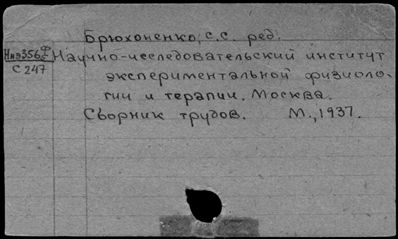 Брюхоненко, С.С. ред.
Научно-исследовательский институт
С 247
экспериментальной физиоло-
гии и терапии. Москва.
Сборник трудов. М., 1937.